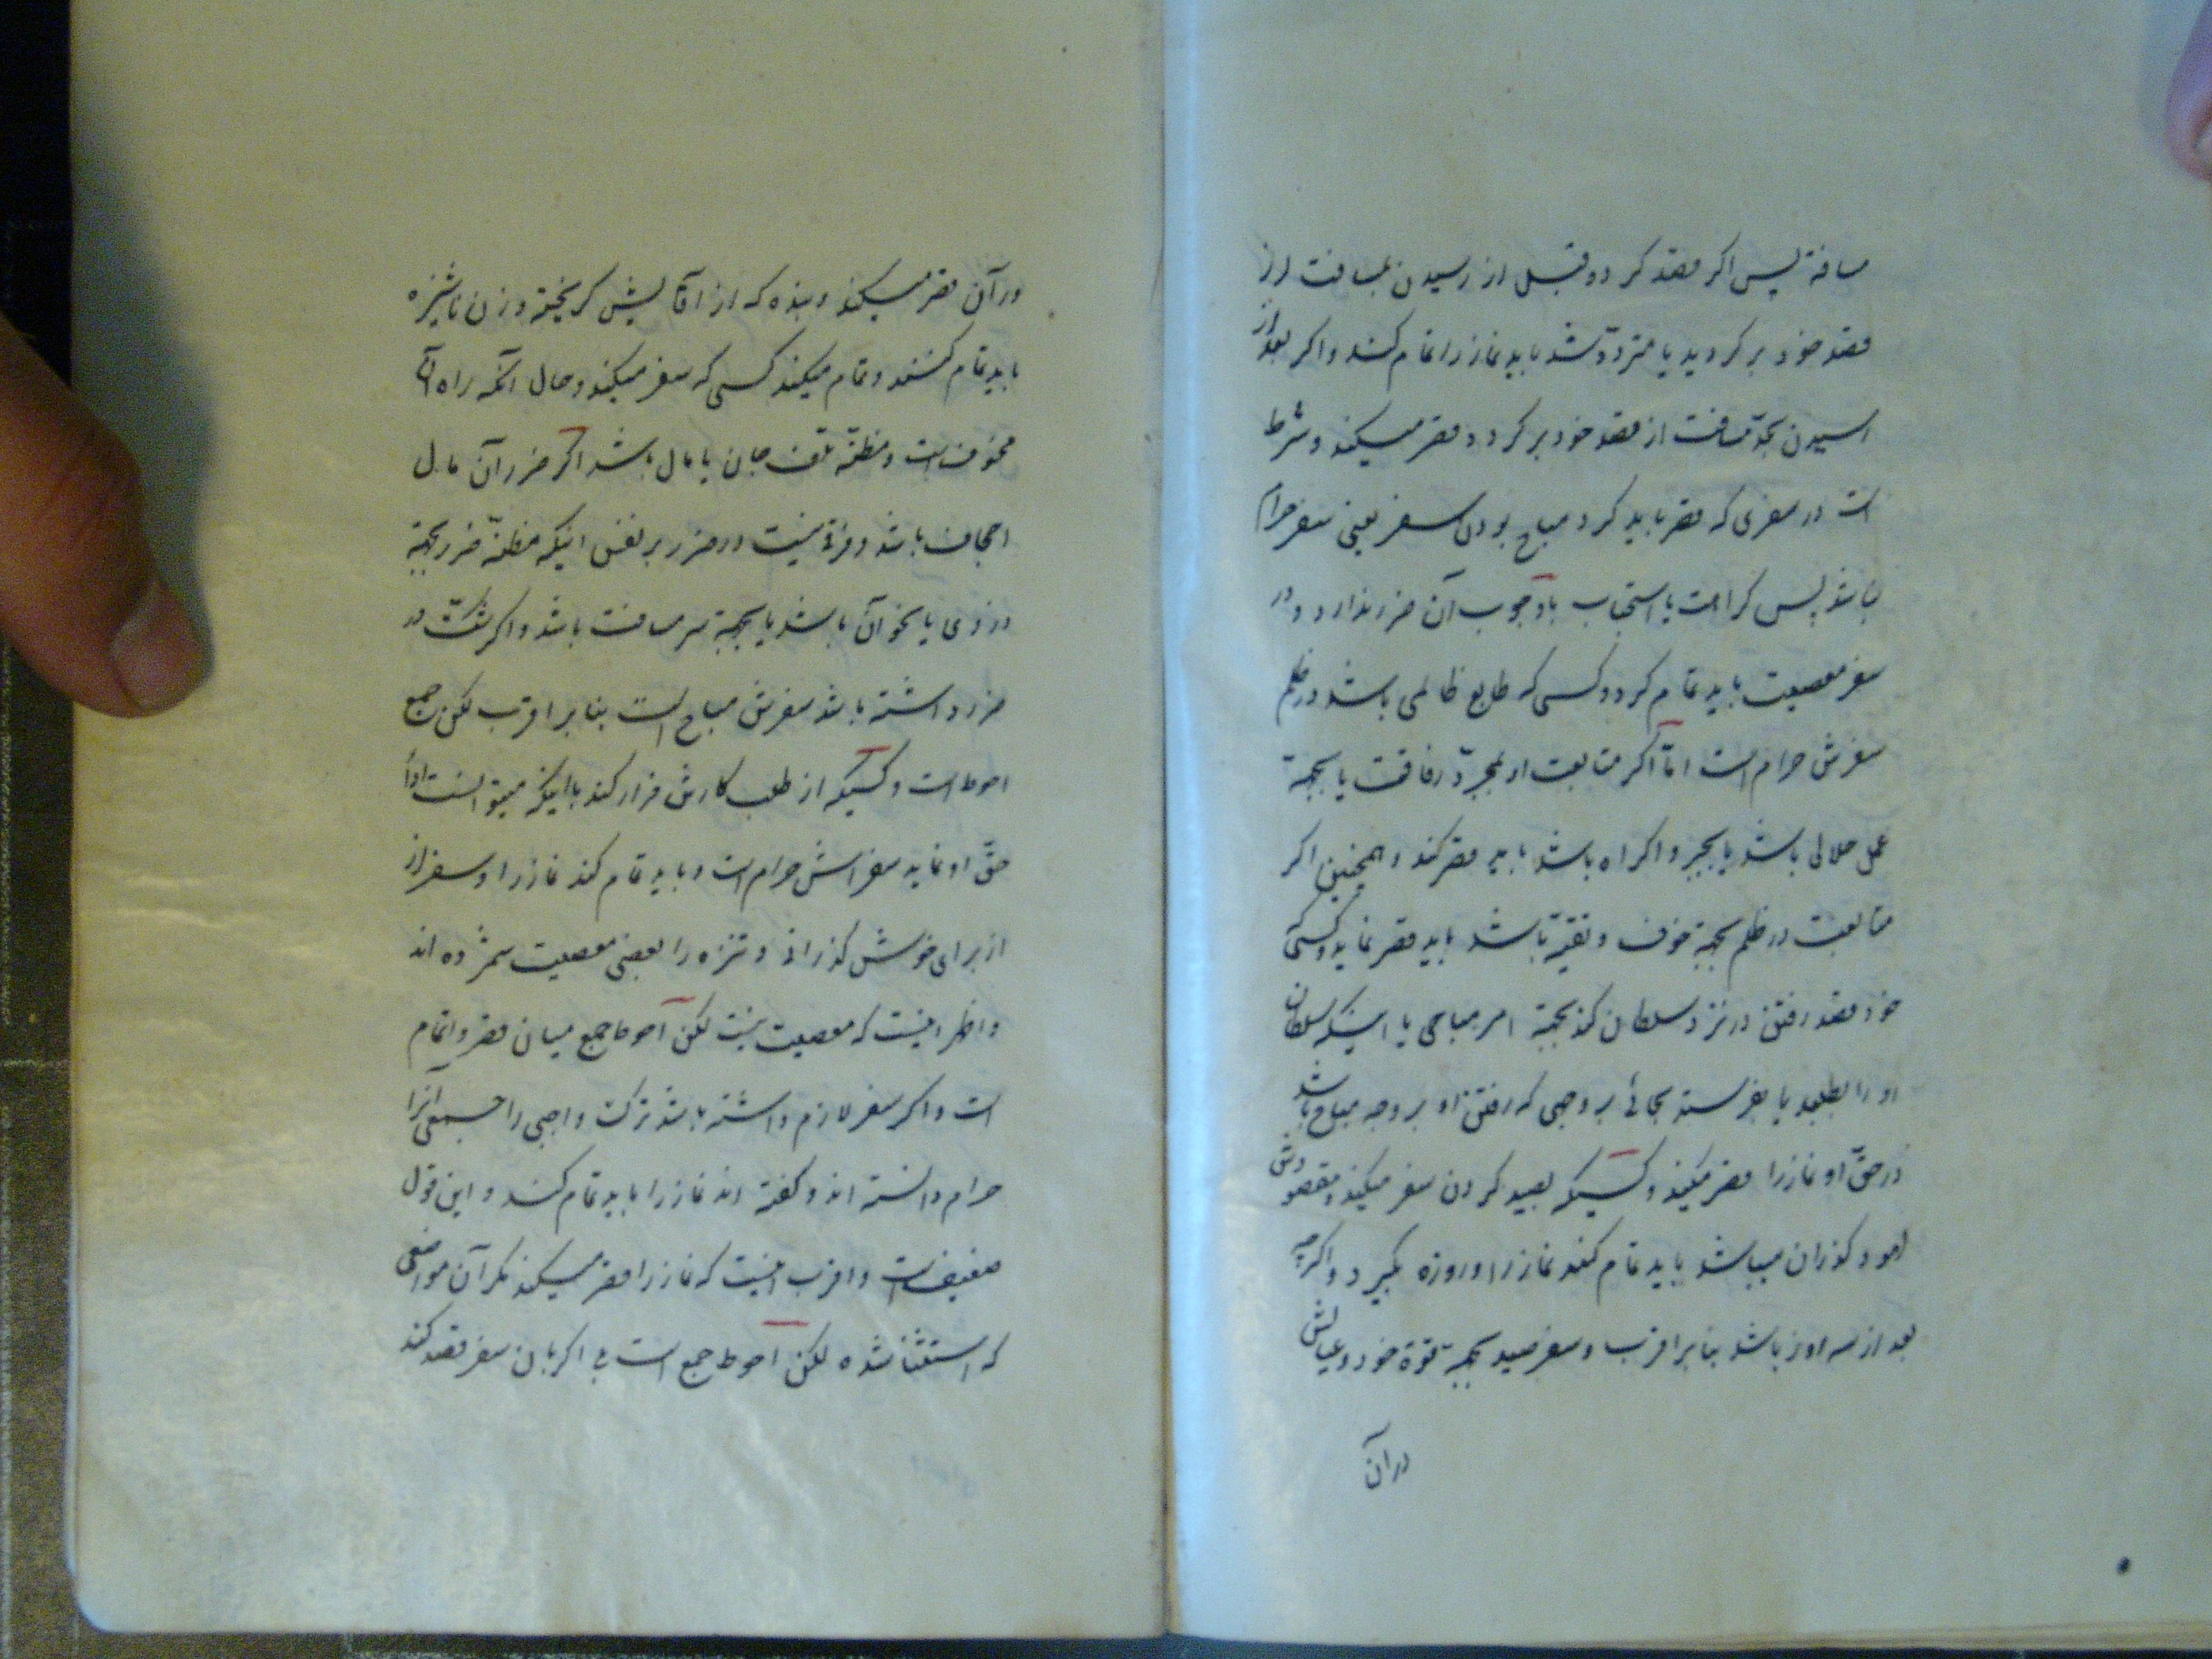 مسافة پس اگر قصد کرد و قبل از رسیدن بمسافت از
قصد خود برگردید یا متردّد شد باید نماز را تمام کند و اگر بعد از
رسیدن بحدّ مسافت از قصد خود برگردد قصر میکند و شرط
است در سفری که قصر باید کرد مباح بودن سفر یعنی سفر حرام
نباشد پس کراهت یا استحباب یا وجوب آن ضرر ندارد و در
سفر معصیت باید تمام کرد و کسی که تابع ظالمی باشد در ظلم
سفرش حرام است امّا اگر متابعت او بمجرّد رفاقت یا بجهة
عمل حلالی باشد یا بجبر و اکراه باشد باید قصر کند و همچنین اگر
متابعت در ظلم بجهة خوف و تقیّه باشد باید قصر نماید و کسی
خود قصد رفتن در نزد سلطان کند بجهة امر مباحی یا اینکه سلطان
او را بطلبد یا بفرستد بجائی بر وجهی که رفتن او بر وجه مباح باشد
در حقّ او نماز را قصر میکند و کسیکه بصید کردن سفر میکند و مقصودش
لهو و گذران میباشد باید تمام کند نماز را و روزه بگیرد و اگرچه
بعد از سه روز باشد بنابر اقرب و سفر صید بجهة قوة خود و عیالش
در آن
در آن قصر میکند و بنده که از اقایش گریخته و زن ناشیزه
باید تمام کنند و تمام میکند کسی که سفر میکند و حال آنکه راه
مخوف است و مظنّه تلف جان یا مال باشد اگر ضرر آن مال
اجحاف باشد و فرقی نیست در ضرر بر نفس اینکه مظنّه ضرر بجهة
دزدی یا نحو آن باشد یا بجهة سر مسافت باشد و اگر شک در
ضرر داشته باشد سفرش مباح است بنابر اقرب لکن جمع
احوط است و کسیکه از طلب کارش فرار کند با اینکه میتوانست اداء
حقّ او نماید سفرش حرام است و باید تمام کند نماز را و سفر از
از برای خوش گذرانی و تنزه را بعضی معصیت شمرده اند
و اظهر اینست که معصیت نیست لکن احوط جمع میان قصر و اتمام
است و اگر سفر لازم داشته باشد ترک واجبی را جمعی آنرا
حرام دانسته اند و گفته اند نماز را باید تمام کند و این قول
ضعیف است و اقرب اینست که نماز را قصر میکند مگر آن مواضعی
که استثنا شده لکن احوط جمع است بلی اگر بان سفر قصد کند